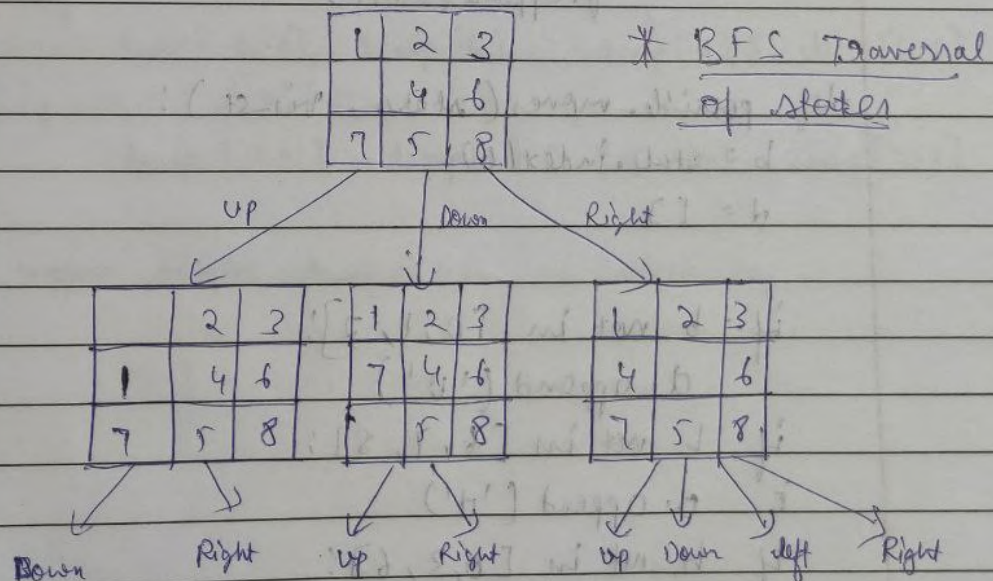 * BFS Traversal
of states
1 2 3
4 6
7 5 8
UP Down Right
2 3
1 4 6
7 5 8
1 2 3
7 4 6
5 8
1 2 3
4 6
7 5 8
Down Right Up Right Up Down left Right